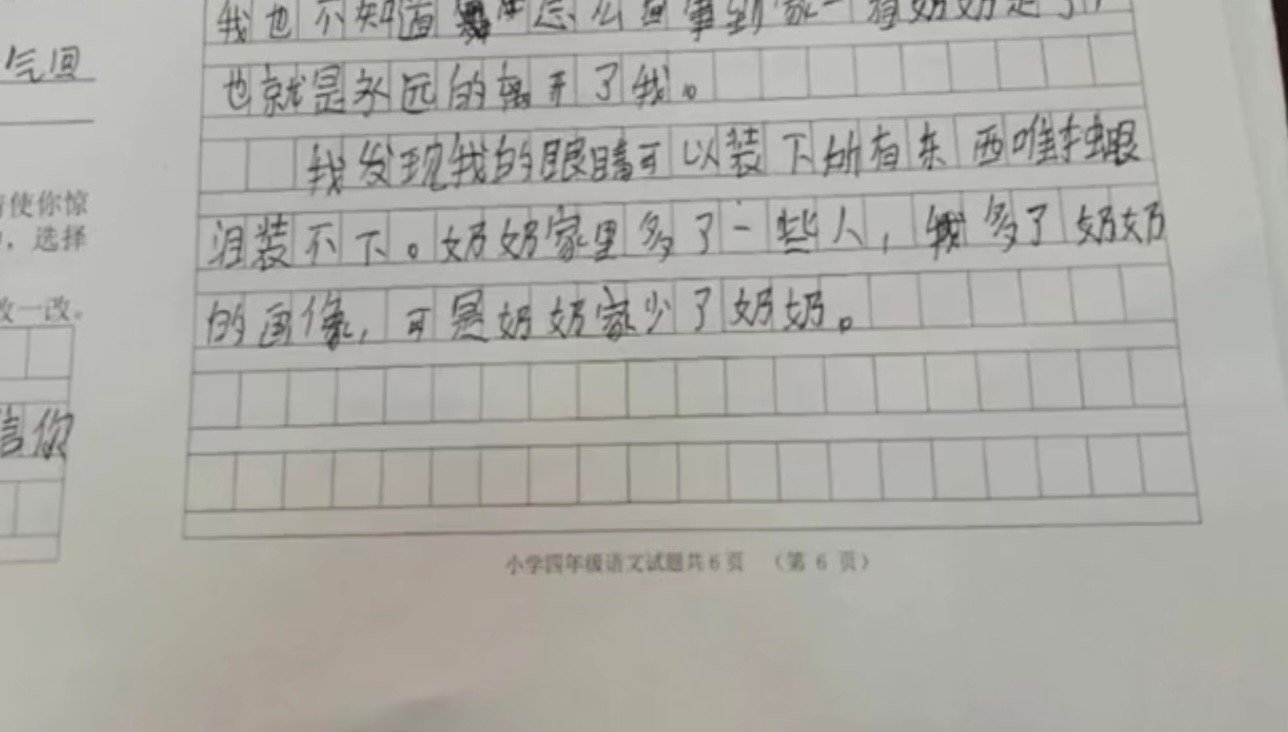 气回
使你惊
，选择
改一改。
信你
我也不知道 怎么回事到家一看奶奶走了，
也就是永远的离开了我。
我发现我的眼睛可以装下所有东西唯独眼
泪装不下。奶奶家里多了一些人，我多了奶奶
的画像，可是奶奶家少了奶奶。
小学四年级语文试题共6页 （第 6 页）